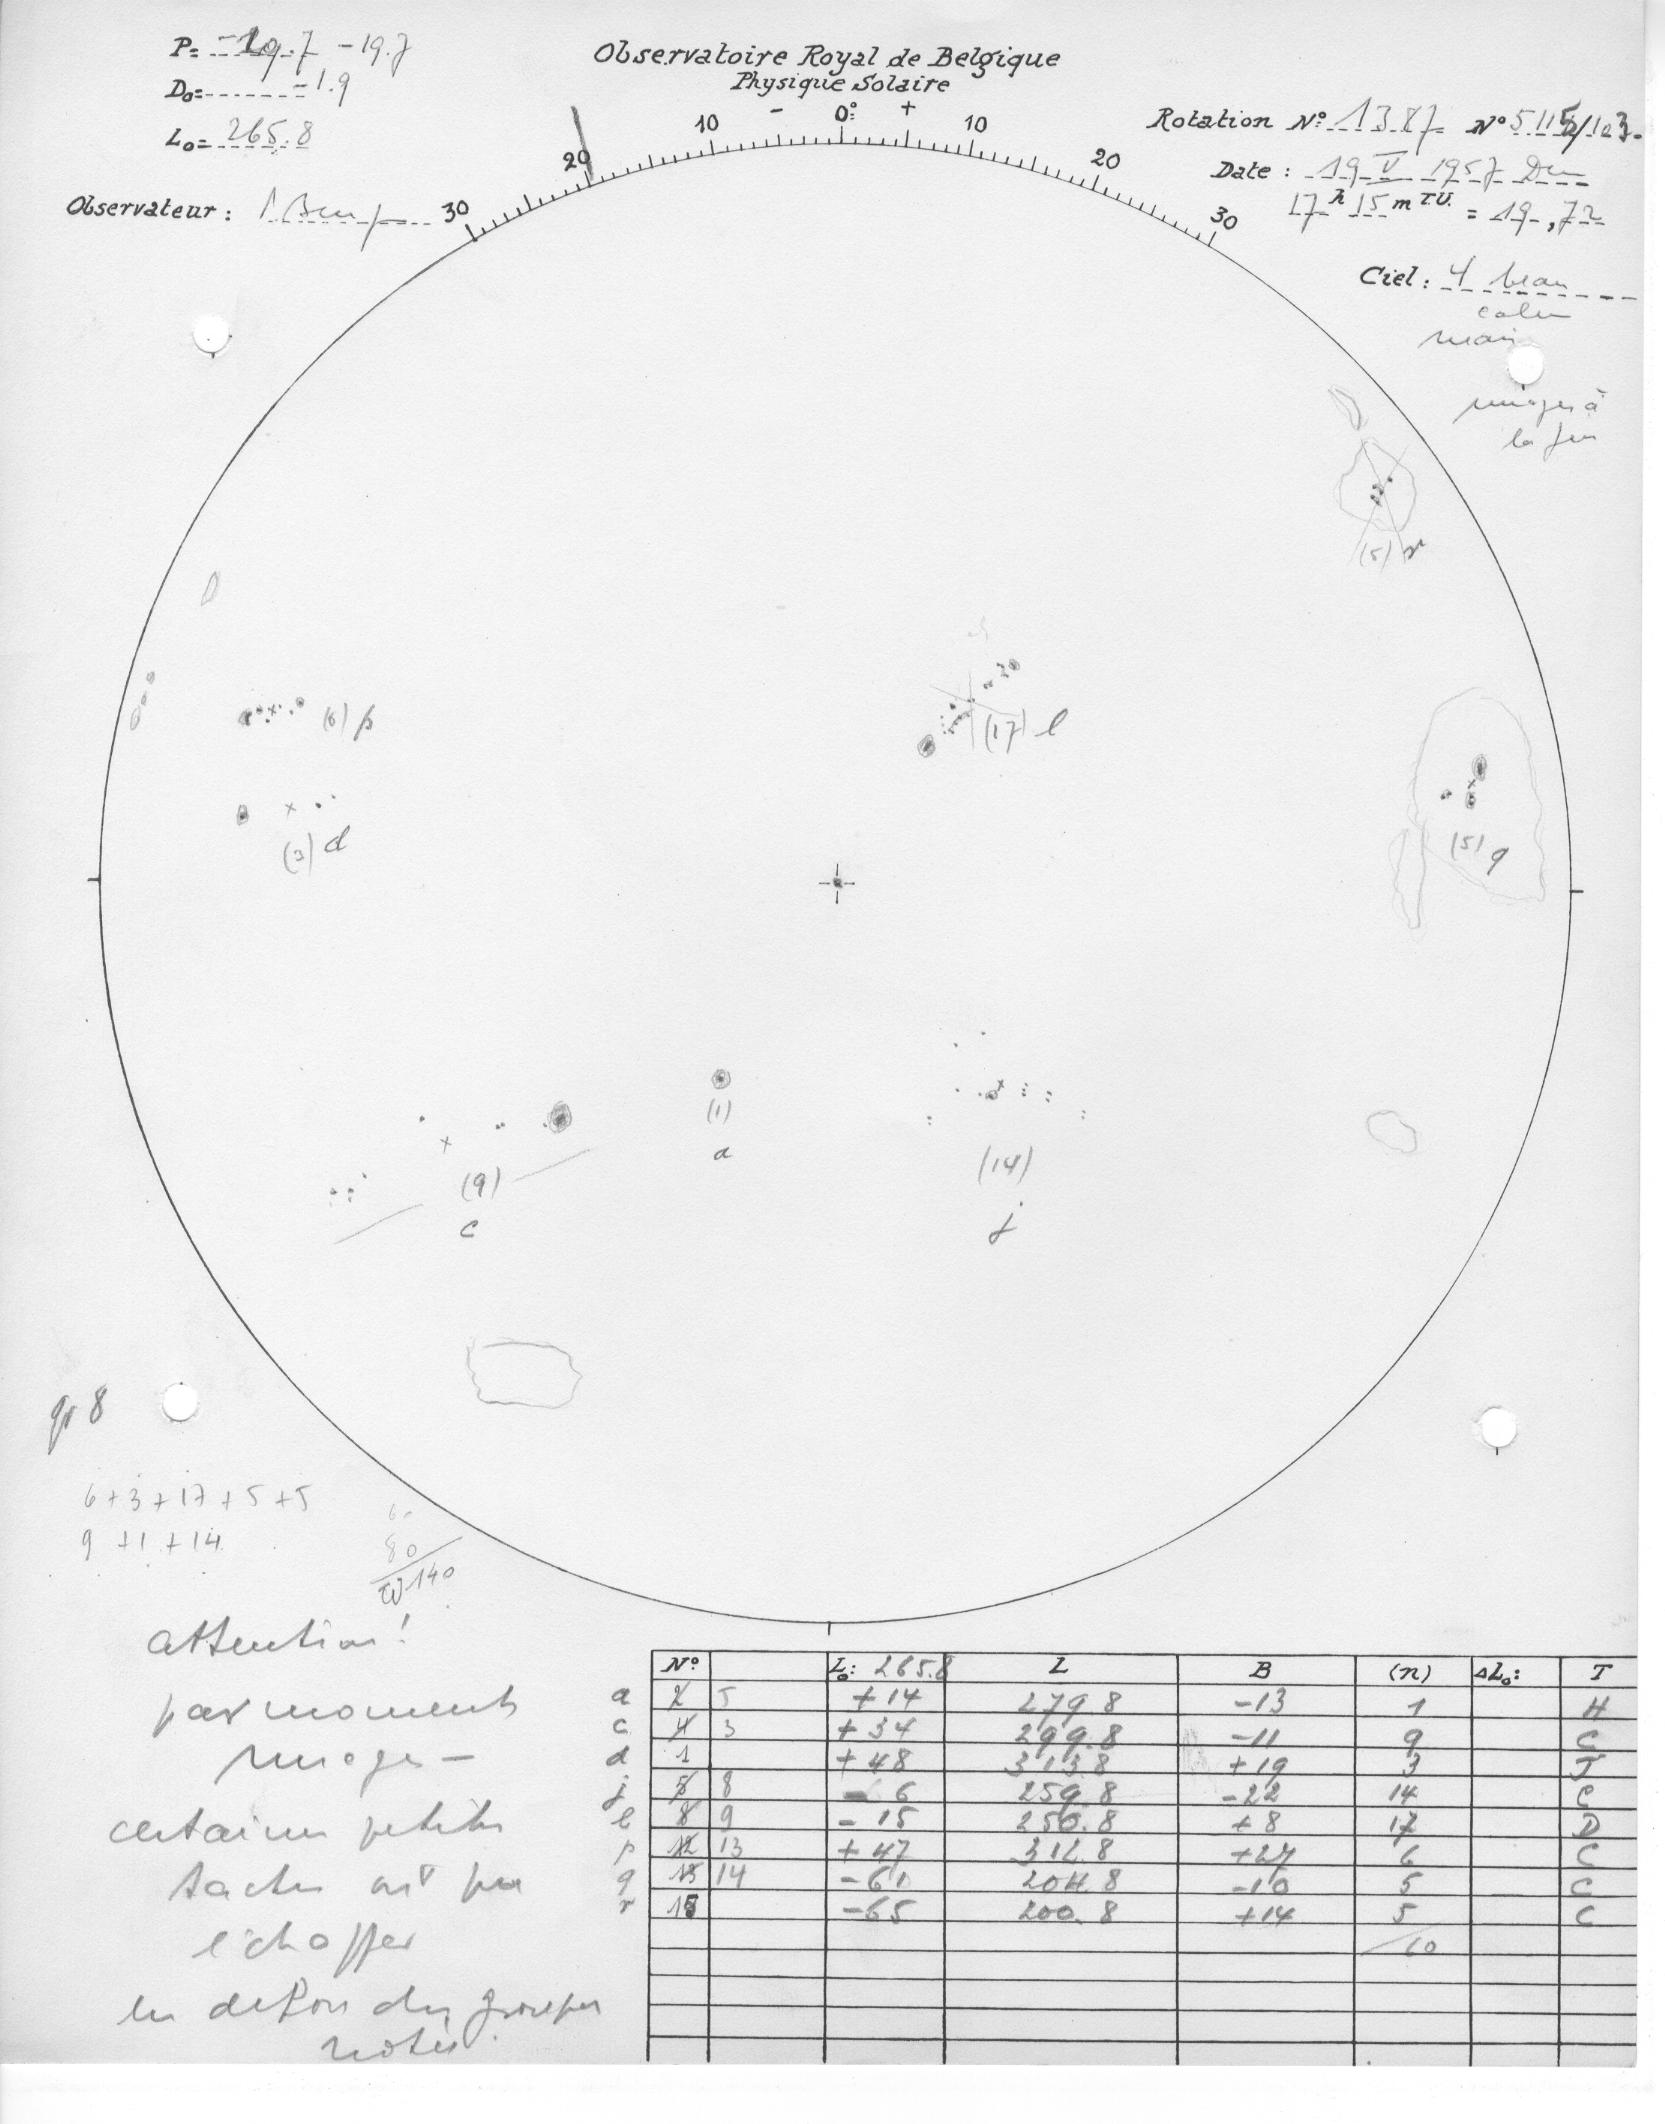 P= -19.7 -19.7
D₀= -1.9
L₀= 265.8
Observateur :
Observatoire Royal de Belgique
Physique Solaire
- 0° +
30 20 10 10 20 30
Rotation N° 1387 N° 5115/123.
Date : 19 V 1957
17 h 15 m T.U. = 19,72
Ciel : 4 beau
calme
mais
nuages à
la fin
(5) r
(6) p
(17) l
(3) d
(5) q
(1)
a
(9)
c
(14)
j
gr 8
6+3+17+5+5
9+1+14
60
80
W 140
attention!
par moments
nuages -
certaines petites
taches ont pu
échapper
en dehors des groupes
notés.
N° L₀: 265.8 L B (n) ΔL₀: T
a 2 5 +14 279.8 -13 1 H
c 4 3 +34 299.8 -11 9 C
d 1 +48 313.8 +19 3 J
j 5 8 - 6 259.8 -22 14 C
l 8 9 - 15 250.8 +8 17 D
p 12 13 +47 312.8 +27 6 C
q 13 14 -61 204.8 -10 5 C
r 15 -65 200.8 +14 5 C
60